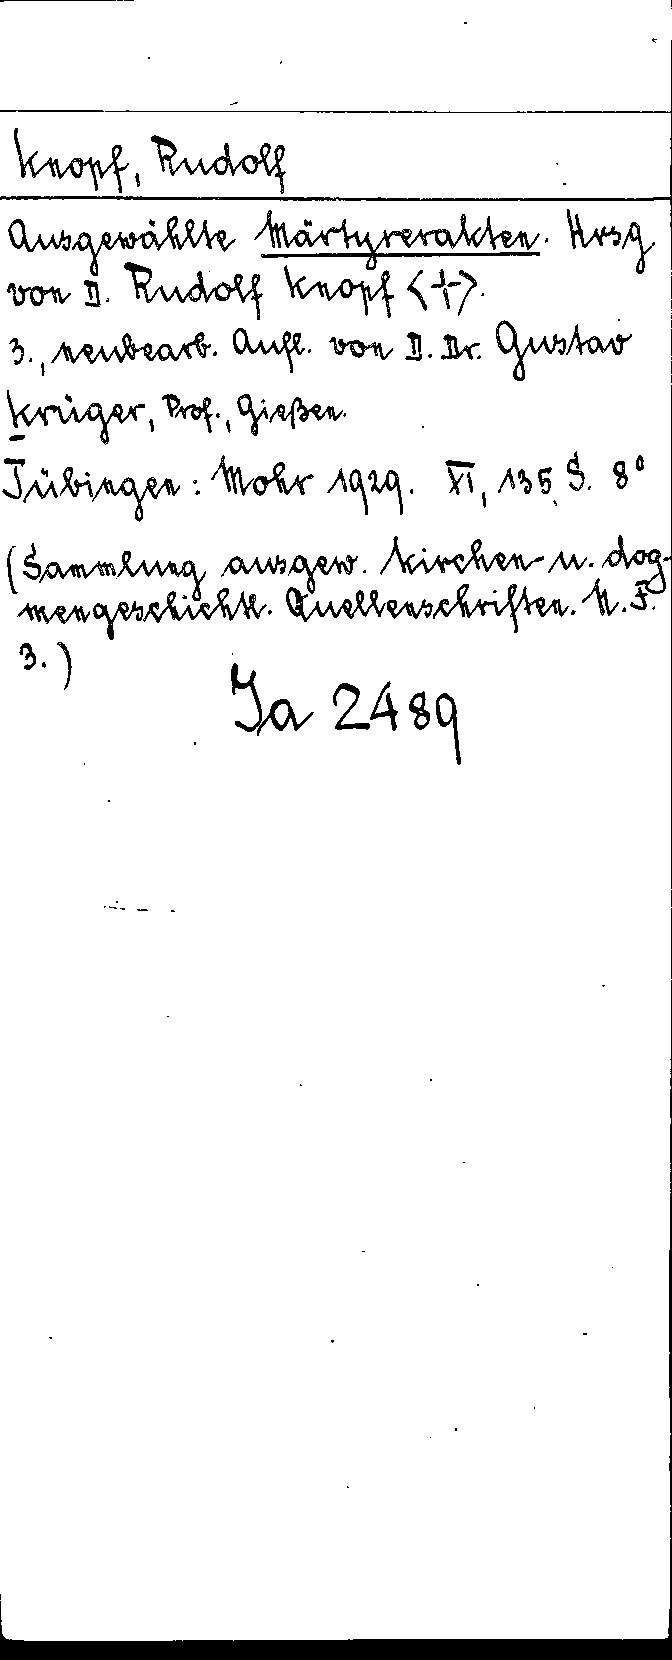 Knopf, Rudolf
Ausgewählte Märtyrerakten. Hrsg
von D. Rudolf Knopf <†>.
3., neubearb. Aufl. von D. Dr. Gustav
Krüger, Prof., Gießen.
Tübingen: Mohr 1929. XI, 135 S. 8°
(Sammlung ausgew. kirchen- u. dog-
mengeschichtl. Quellenschriften. N. F.
3.)
Ja 2489